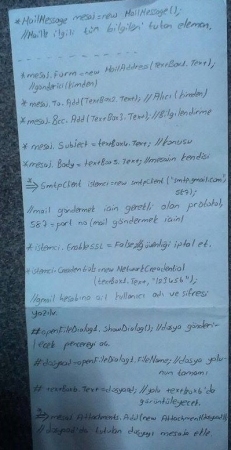 * MailMessage mesaj=new MailMessage();
//Maille ilgili tüm bilgileri tutan eleman.
* mesaj.From=new MailAddress(TextBox1.Text);
//gönderici(kimden)
* mesaj.To.Add(TextBox2.Text); //Alıcı(kimden)
* mesaj.Bcc.Add(TextBox3.Text); //Bilgilendirme
* mesaj.Subject=textBox4.Text; //konusu
* mesaj.Body=textBox5.Text; //mesajın kendisi
* => SmtpClient istemci=new smtpClient("smtp.gmail.com",
587);
//mail göndermek için gerekli olan protokol,
587=port no(mail göndermek için)
* istemci.EnableSSL=False; //güvenliği iptal et.
* istemci.Credentials=new NetworkCredential
(textBox1.Text, "123456");
//gmail hesabına ait kullanıcı adı ve şifresi
yazılır.
## openFileDialog1.ShowDialog(); //dosya gönderi-
lecek pencereyi aç
# dosyaad=openFileDialog1.FileName; //dosya yolu-
nun tamamı
# textBox6.Text=dosyaad; //yolu textbox6'da
görüntüleyecek.
* => mesaj.Attachments.Add(new Attachment(dosyaad));
// dosyaad'da tutulan dosyayı mesaja ekle